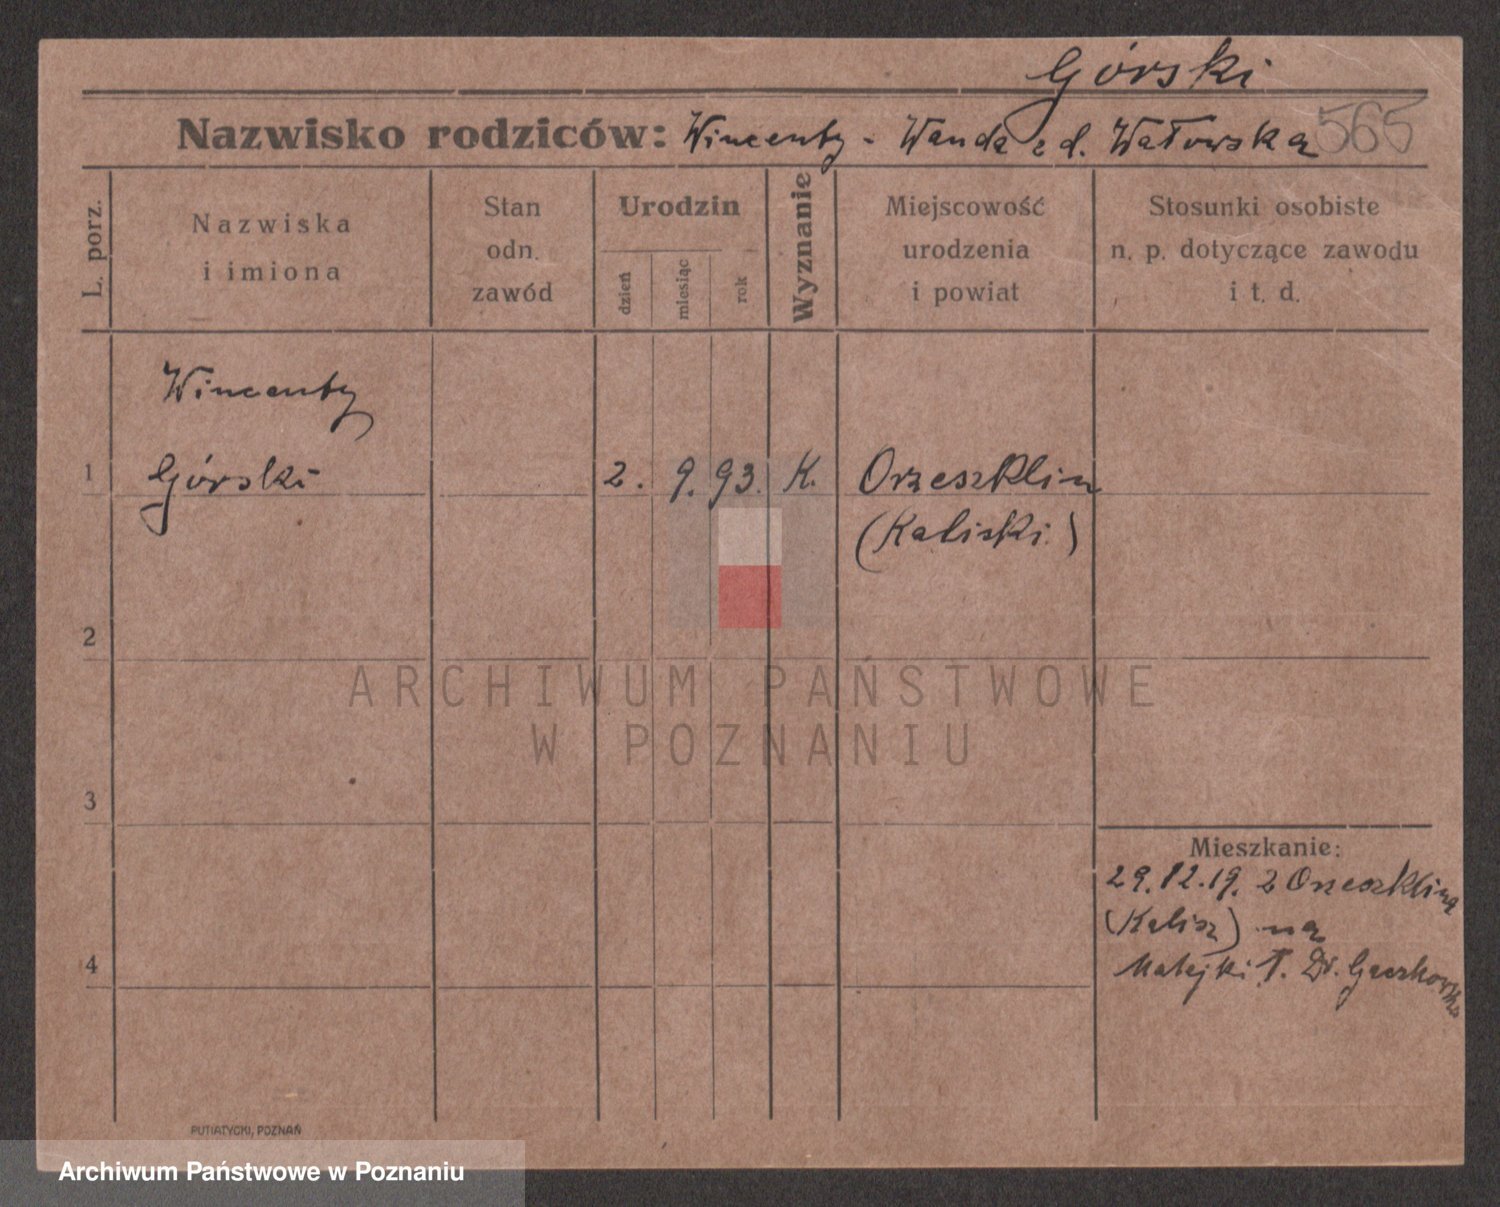 Górski
Nazwisko rodziców: Wincenty - Wanda z d. Watowska 565
L. porz.
Nazwiska
i imiona
Stan
odn.
zawód
Urodzin
dzień
miesiąc
rok
Wyznanie
Miejscowość
urodzenia
i powiat
Stosunki osobiste
n. p. dotyczące zawodu
i t. d.
Wincenty
1 Górski 2. 9. 93. K. Orzeszklin
(Kaliski.)
2
ARCHIWUM PAŃSTWOWE
W POZNANIU
3
Mieszkanie:
29.12.19. z Orzeszklina
(Kalisz) na
4 Matejki 1. Dr.
PUTIATYCKI, POZNAŃ
Archiwum Państwowe w Poznaniu